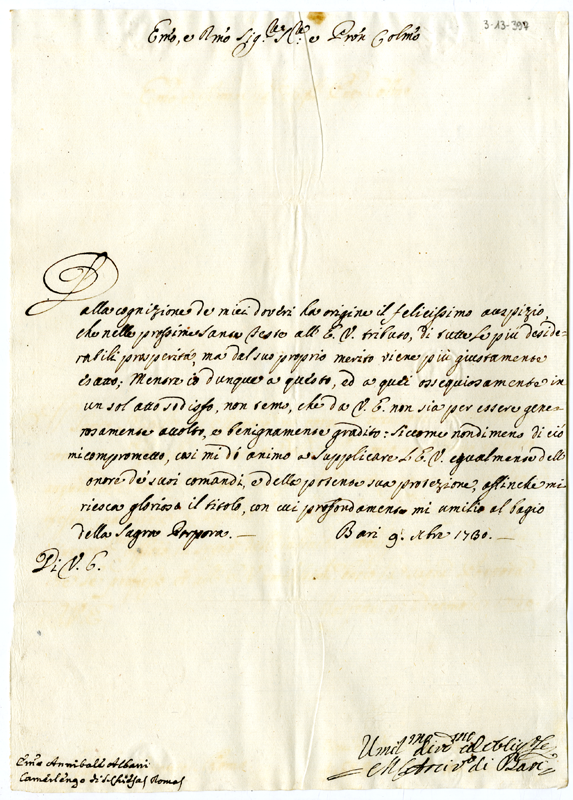 3-13-397
Em̃o, e Rm̃o Sig.r e Pron Colm̃o
Dalla cognizione de miei doveri ha origine il felicissimo auspizio,
che nelle prossime Sante Feste all' E. V. tributo, di tutte le più deside-
rabili prosperità, ma del suo proprio merito viene più giustamente
esatto; Mentre io dunque a questo, ed a queli ossequiosamente in
un sol atto sodisfo, non temo, che da V. E. non sia per essere gene-
rosamente accolto, e benignamente gradito: Siccome nondimeno di ciò
mi comprometto, così mi dò animo a supplicare l'E. V. egualmente dell'
onore de' suoi comandi, e della potente sua protezione, affinche mi
riesca glorioso il titolo, con cui profondamente mi umilio al bagio
della Sagra Porpora. — Bari 9. Xbre 1730. —
Di V. E.
Umil.mo div.mo ed oblig.
Arciv.o di Bari
Em̃o Anniball Albani
Camerlengo di S. Chiesa Roma